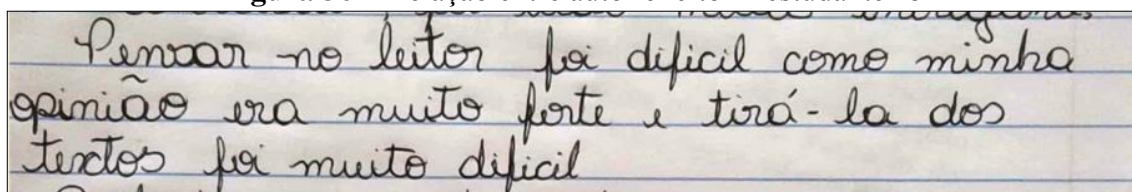 Pensar no leitor foi dificil como minha
opinião era muito forte e tirá-la dos
textos foi muito dificil